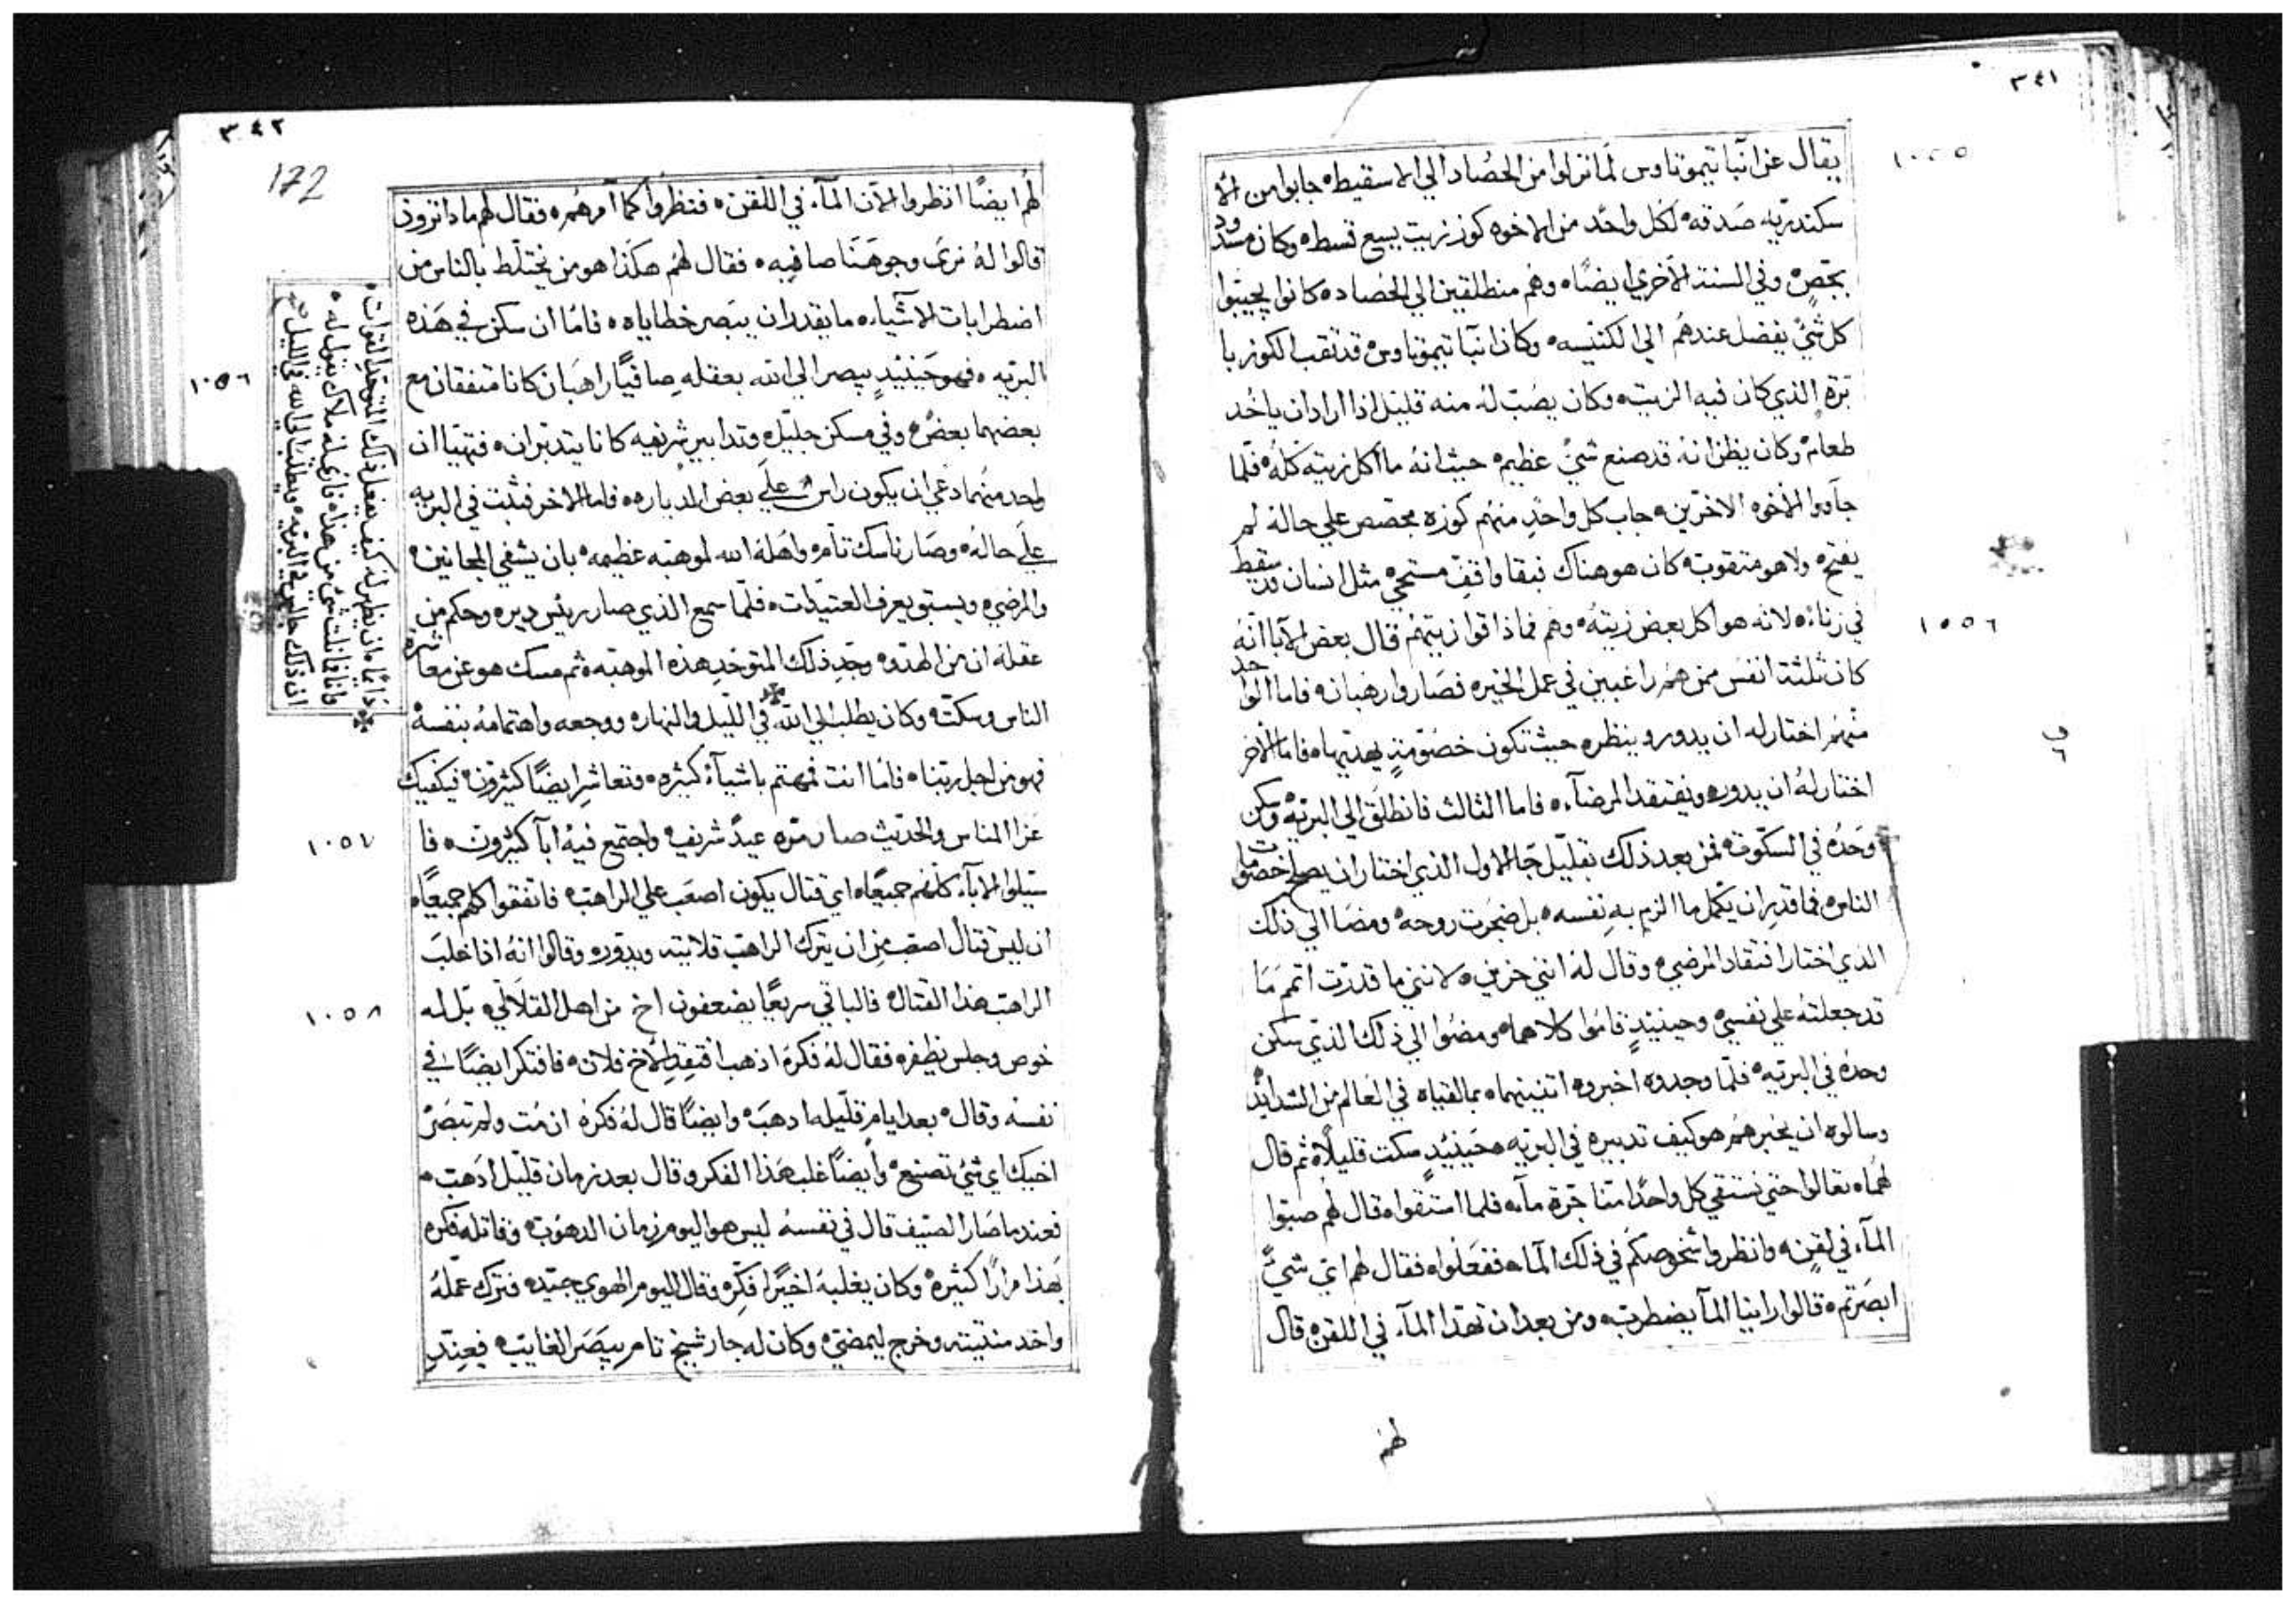 ٣٤١
١٠٥٥
يقال عن انبا تيموتاوس لما نزلوا من الحصاد الي الاسقيطه جابوا من الا
سكندريه صدقه لكل واحد من الاخوه كوز زيت يسع قسطه وكان مسدود
بجصٍ وفي السنة الاخري ايضًا وهم منطلقين الي الحصاد كانوا يجيبوا
كل شيٍ يفضل عندهم الي الكنيسه وكان انبا تيموتاوس قد تقب الكوز با
برة الذي كان فيه الزيت وكان يصب له منه قليل اذا اراد ان ياخد
طعام وكان يظن انه قد صنع شيٍ عظيم حيث انه ما اكل زيته كله فلما
جاووا الاخوه الاخرين جاب كل واحدٍ منهم كوزه مجصص علي حاله لم
يفتح ولا هو متقوب كان هو هناك نبقا واقف مستحي مثل انسان قد سقط
١٠٥٦
في زناء لانه هو اكل بعض زيته وهم فما ذاقوا زيتهم قال بعض الآبا انه
كان ثلثة انفس ممن هم راغبين في عمل الخير فصاروا رهبان فاما الواحد
منهم اختار له ان يدور وينظر حيث تكون خصومةٍ يهديها فاما الاخر
اختار له ان يدور ويفتقد المرضاء فاما الثالث فانطلق الي البريه وسكن
وحده في السكوت فمن بعد ذلك بقليل جا الاول الذي اختار ان يصلح خصومات
الناس فما قدر ان يكمل ما الزم به نفسه بل ضجرت روحه ومضا الي ذلك
الذي اختار افتقاد المرضي وقال له انني حزين لانني ما قدرت اتمم ما
قد جعلته علي نفسي وحينيدٍ قاموا كلاهما ومضوا الي ذلك الذي سكن
وحده في البريه فلما وجدوه اخبروه اتنينهما بما لقياه في العالم من الشدايد
وسالوه ان يخبرهم هو كيف تدبيره في البريه حينيدٍ سكت قليلاً ثم قال
لهما تعالوا حتي نستقي كل واحدًا منا جرة مآء فلما استقوا قال لهم صبوا
المآء في لقن وانظروا شخوصكم في ذلك المآء ففعلوا فقال لهم اي شيٍ
ابصرتم قالوا راينا المآء يضطرب ومن بعد ان تهدا المآء في اللقن قال
لهم
٣٤٢
172
لهم ايضًا انظروا الآن المآء في اللقن فنظروا كما آمرهم فقال لهم ماذا ترون
قالوا له نري وجوهنا صافيه فقال لهم هكذا هو من يختلط بالناس من
اضطرابات الاشياء ما يقدر ان يبصر خطاياه فاما ان سكن في هذه
١٠٥٦
البريه فهو حينيدٍ يبصر الي الله بعقله صافيًا راهبان كانا متفقان مع
بعضهما بعض وفي مسكن جليل وتدابير شريفه كانا يتدبران فتهيا ان
واحد منهما دعي ان يكون راس علي بعض الدياره فاما الاخر فثبت في البريه
علي حاله وصار ناسك تام واهله الله لموهبه عظيمه بان يشفي المجانين
والمرضي ويسبق يعرف العتيدات فلما سمع الذي صار ريس دير وحكم من
عقله ان من الهدو وجد ذلك المتوحد هذه الموهبه ثم مسك هو عن معاشرة
الناس وسكت وكان يطلب الي الله في الليل والنهار ووجعه واهتمامه بنفسه
دايمًا ان يظهر له كيف يفعل ذلك المتوحد القوات
وانا فانلت شيٍ من هذا فاتي له ملاك يقول له
ان ذلك جالس في البريه ويطلب الي الله في الليل
فهو من اجل ربنا فاما انت فمهتم باشيآء كثيره وتعاشر ايضًا كثيرون فيكفيك
١٠٥٧
عزا الناس والحديث صار مره عيدٌ شريف واجتمع فيه ابآ كثيرون فا
سيلوا الابآء كلهم جميعًا اي قتال يكون اصعب علي الراهب فاتفقوا كلهم جميعًا
ان ليس قتال اصعب من ان يترك الراهب قلايته ويدور وقالوا انه اذا غلب
١٠٥٨
الراهب هذا القتال فالباقي سريعًا يضعفون اخ من اهل القلالي بل له
خوص وجلس يظفر فقال له فكره اذهب افتقد الاخ فلان فافتكر ايضًا في
نفسه وقال بعد ايام قليله ادهب وايضًا قال له فكره ان مت ولم تبصر
اخيك اي شي تصنع وايضًا غلب هذا الفكر وقال بعد زمان قليل ادهب
فعند ما صار الصيف قال في نفسه ليس هو اليوم زمان الدهوب وقاتله فكره
بهذا مرارًا كثيره وكان يغلبه اخيرًا فكره وقال اليوم الهوي جيد فترك عمله
واخد منتيته وخرج ليمضي وكان له جار شيخ تام يبصر الغايب فعند